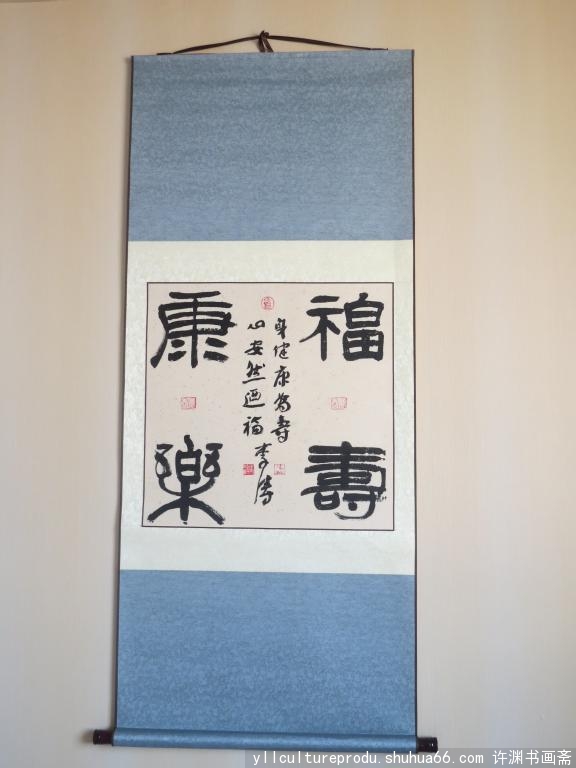 福壽
康樂
身健康為壽
心安然廼福
李
yllcultureprodu.shuhua66.com 许渊书画斋